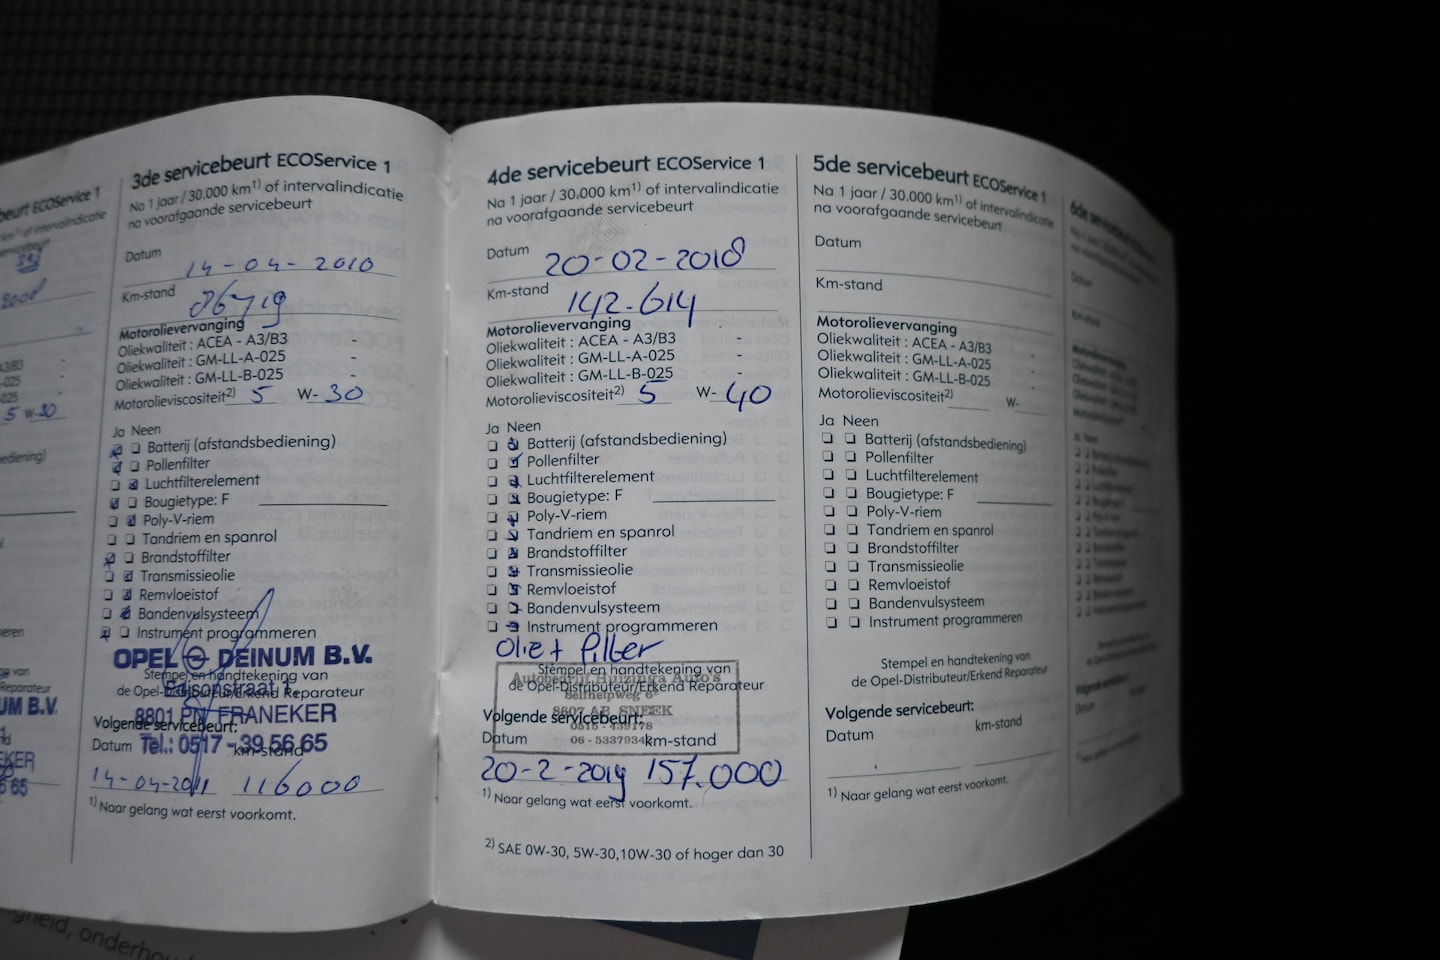 beurt ECOService 1
2008
5 W-30
ediening)
UM B.V.
3de servicebeurt ECOService 1
Na 1 jaar / 30.000 km1) of intervalindicatie
na voorafgaande servicebeurt
Datum 14-04-2010
Km-stand 86719
Motorolievervanging
Oliekwaliteit : ACEA - A3/B3 -
Oliekwaliteit : GM-LL-A-025 -
Oliekwaliteit : GM-LL-B-025 -
Motorolieviscositeit2) 5 W- 30
Ja Neen
Batterij (afstandsbediening)
Pollenfilter
Luchtfilterelement
Bougietype: F
Poly-V-riem
Tandriem en spanrol
Brandstoffilter
Transmissieolie
Remvloeistof
Bandenvulsysteem
Instrument programmeren
OPEL DEINUM B.V.
Stempel en handtekening van
de Opel-Distributeur/Erkend Reparateur
Edisonstraat 1
8801 PN FRANEKER
Volgende servicebeurt:
Tel.: 0517 - 39 56 65
Datum km-stand
14-04-2011 116000
1) Naar gelang wat eerst voorkomt.
4de servicebeurt ECOService 1
Na 1 jaar / 30.000 km1) of intervalindicatie
na voorafgaande servicebeurt
Datum 20-02-2018
Km-stand 142.614
Motorolievervanging
Oliekwaliteit : ACEA - A3/B3 -
Oliekwaliteit : GM-LL-A-025 -
Oliekwaliteit : GM-LL-B-025 -
Motorolieviscositeit2) 5 W- 40
Ja Neen
Batterij (afstandsbediening)
Pollenfilter
Luchtfilterelement
Bougietype: F
Poly-V-riem
Tandriem en spanrol
Brandstoffilter
Transmissieolie
Remvloeistof
Bandenvulsysteem
Instrument programmeren
Olie + filter
Stempel en handtekening van
Autobedrijf Huizinga Auto's
de Opel-Distributeur/Erkend Reparateur
Selfhelpweg
8607 AB SNEEK
Volgende servicebeurt:
0515 - 439178
06 - 5337934
Datum km-stand
20-2-2019 157.000
1) Naar gelang wat eerst voorkomt.
2) SAE 0W-30, 5W-30,10W-30 of hoger dan 30
5de servicebeurt ECOService 1
Na 1 jaar / 30.000 km1) of intervalindicatie
na voorafgaande servicebeurt
Datum
Km-stand
Motorolievervanging
Oliekwaliteit : ACEA - A3/B3 -
Oliekwaliteit : GM-LL-A-025 -
Oliekwaliteit : GM-LL-B-025 -
Motorolieviscositeit2) W-
Ja Neen
Batterij (afstandsbediening)
Pollenfilter
Luchtfilterelement
Bougietype: F
Poly-V-riem
Tandriem en spanrol
Brandstoffilter
Transmissieolie
Remvloeistof
Bandenvulsysteem
Instrument programmeren
Stempel en handtekening van
de Opel-Distributeur/Erkend Reparateur
Volgende servicebeurt:
Datum km-stand
1) Naar gelang wat eerst voorkomt.
6de
Datum